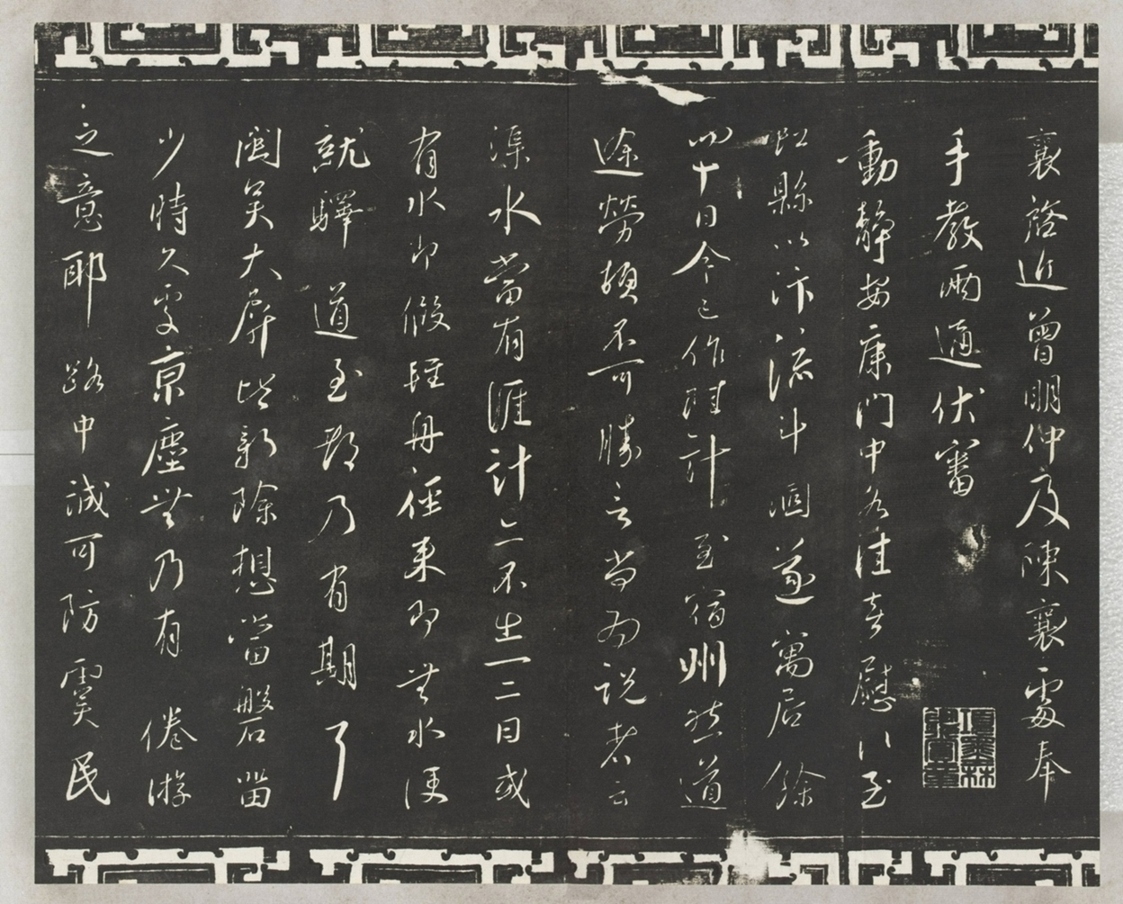 襄啓近曾明仲及陳襄處奉
手教兩通伏審
動靜安康門中各佳喜慰〻至
虹縣以汴流斗涸遂寓居餘
四十日今已作陸計至宿州然道
途勞頓不可勝言尚為説者云
渠水當有涯計亦不出一二日或
有水即假輕舟徑來即無水便
就驛道至都乃有期耳
閩吳大屏皆新除想當磐留
少時久處京塵無乃有倦游
之意耶路中誠可防虞民
項墨林鑑賞章